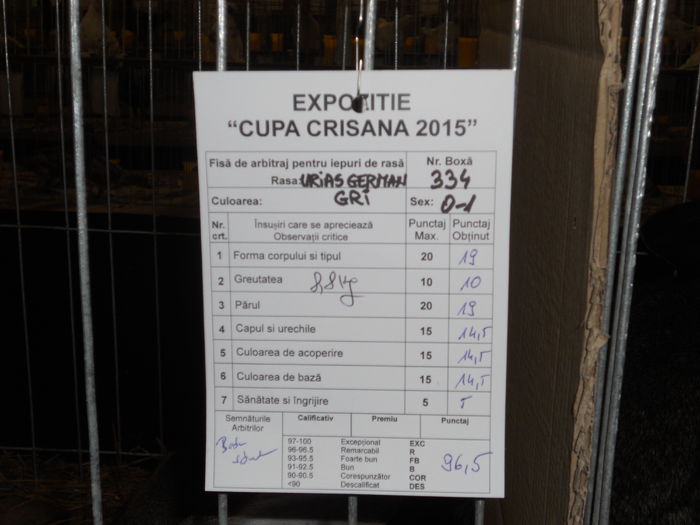 EXPOZITIE
“CUPA CRISANA 2015”
Fisă de arbitraj pentru iepuri de rasă Nr. Boxă
Rasa: URIAS GERMAN 334
Culoarea: GRI Sex: 0-1
Nr. crt. Însușiri care se apreciează Observații critice Punctaj Max. Punctaj Obținut
1 Forma corpului si tipul 20 19
2 Greutatea 8,8 kg 10 10
3 Părul 20 19
4 Capul si urechile 15 14,5
5 Culoarea de acoperire 15 14,5
6 Culoarea de bază 15 14,5
7 Sănătate si îngrijire 5 5
Semnăturile Arbitrilor Calificativ Premiu Punctaj
97-100 Excepțional EXC
96-96.5 Remarcabil R
93-95.5 Foarte bun FB
91-92.5 Bun B
90-90.5 Corespunzător COR
<90 Descalificat DES
96,5